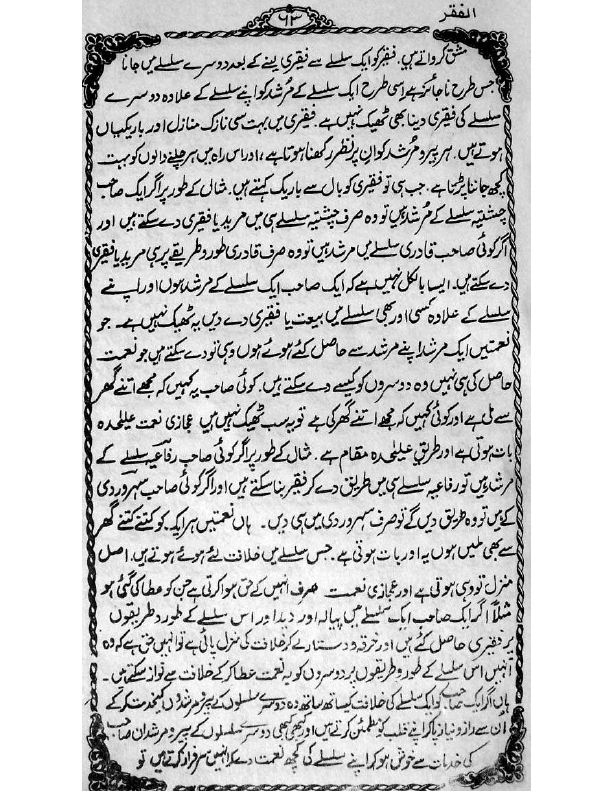 الفقر
۶۳
مشق کرواتے ہیں۔ فقیر کو ایک سلسلے سے فقیری لینے کے بعد دوسرے سلسلے میں جانا
جس طرح ناجائز ہے اسی طرح ایک سلسلے کے مرشد کو اپنے سلسلے کے علاوہ دوسرے
سلسلے کی فقیری دینا بھی ٹھیک نہیں ہے۔ فقیری میں بہت سی نازک منازل اور باریکیاں
ہوتے ہیں۔ ہر پیر و مرشد کو ان پر نظر رکھنا ہوتا ہے، اور اس راہ میں ہر چلنے والوں کو بہت
کچھ جاننا پڑتا ہے۔ جب ہی تو فقیری کو بال سے باریک کہتے ہیں۔ مثال کے طور پر اگر ایک صاحب
چشتیہ سلسلے کے مرشد ہیں تو وہ صرف چشتیہ سلسلے ہی میں مرید یا فقیری دے سکتے ہیں اور
اگر کوئی صاحب قادری سلسلے میں مرشد ہیں تو وہ صرف قادری طور و طریقے پر ہی مرید یا فقیری
دے سکتے ہیں۔ ایسا بالکل نہیں ہے کہ ایک صاحب ایک سلسلے کے مرشد ہوں اور اپنے
سلسلے کے علاوہ کسی اور بھی سلسلے میں بیعت یا فقیری دے دیں یہ ٹھیک نہیں ہے۔ جو
نعمتیں ایک مرشد اپنے مرشد سے حاصل کئے ہوئے ہوں وہی تو دے سکتے ہیں جو نعمت
حاصل کی ہی نہیں وہ دوسروں کو کیسے دے سکتے ہیں۔ کوئی صاحب یہ کہیں کہ مجھے اتنے گھر
سے ملی ہے اور کوئی کہیں کہ مجھے اتنے گھر کی ہے تو یہ سب ٹھیک نہیں ہیں مجازی نعمت علیٰحدہ
بات ہوتی ہے اور طریق علیٰحدہ مقام ہے۔ مثال کے طور پر اگر کوئی صاحب رفاعیہ سلسلے کے
مرشد ہیں تو رفاعیہ سلسلے ہی میں طریق دے کر فقیر بنا سکتے ہیں اور اگر کوئی صاحب سہروردی
کے ہیں تو وہ طریق دیں گے تو صرف سہروردی میں ہی دیں۔ ہاں نعمتیں ہر ایک کو کتنے کتنے گھر
سے بھی ملیں ہوں یہ اور بات ہوتی ہے۔ جس سلسلے میں خلافت لئے ہوئے ہوتے ہیں۔ اصل
منزل تو وہی ہوتی ہے اور مجازی نعمت صرف انہیں کے حق ہوا کرتی ہے جن کو عطا کی گئی ہو
مثلاً اگر ایک صاحب ایک سلسلے میں پیالہ اور دیدار اس سلسلے کے طور و طریقوں
پر فقیری حاصل کئے ہیں اور خرقہ و دستار لے کر خلافت کی منزل پائی ہے تو انہیں حق ہے کہ وہ
انہیں اس سلسلے کے طور و طریقوں پر دوسروں کو یہ نعمت عطا کر کے خلافت سے نواز سکتے ہیں۔
ہاں اگر ایک صاحب کو ایک سلسلے کی خلافت کیساتھ ساتھ وہ دوسرے سلسلوں کے پیر و مرشدوں کی خدمت کر کے
ان سے راز و نیاز پا کر اپنے قلب کو مطمئن کرتے ہیں اور کبھی کبھی دوسرے سلسلوں کے پیر و مرشدان صاحب
کی خدمات سے خوش ہو کر اپنے سلسلے کی کچھ نعمت دے کر انہیں سرفراز کرتے ہیں تو